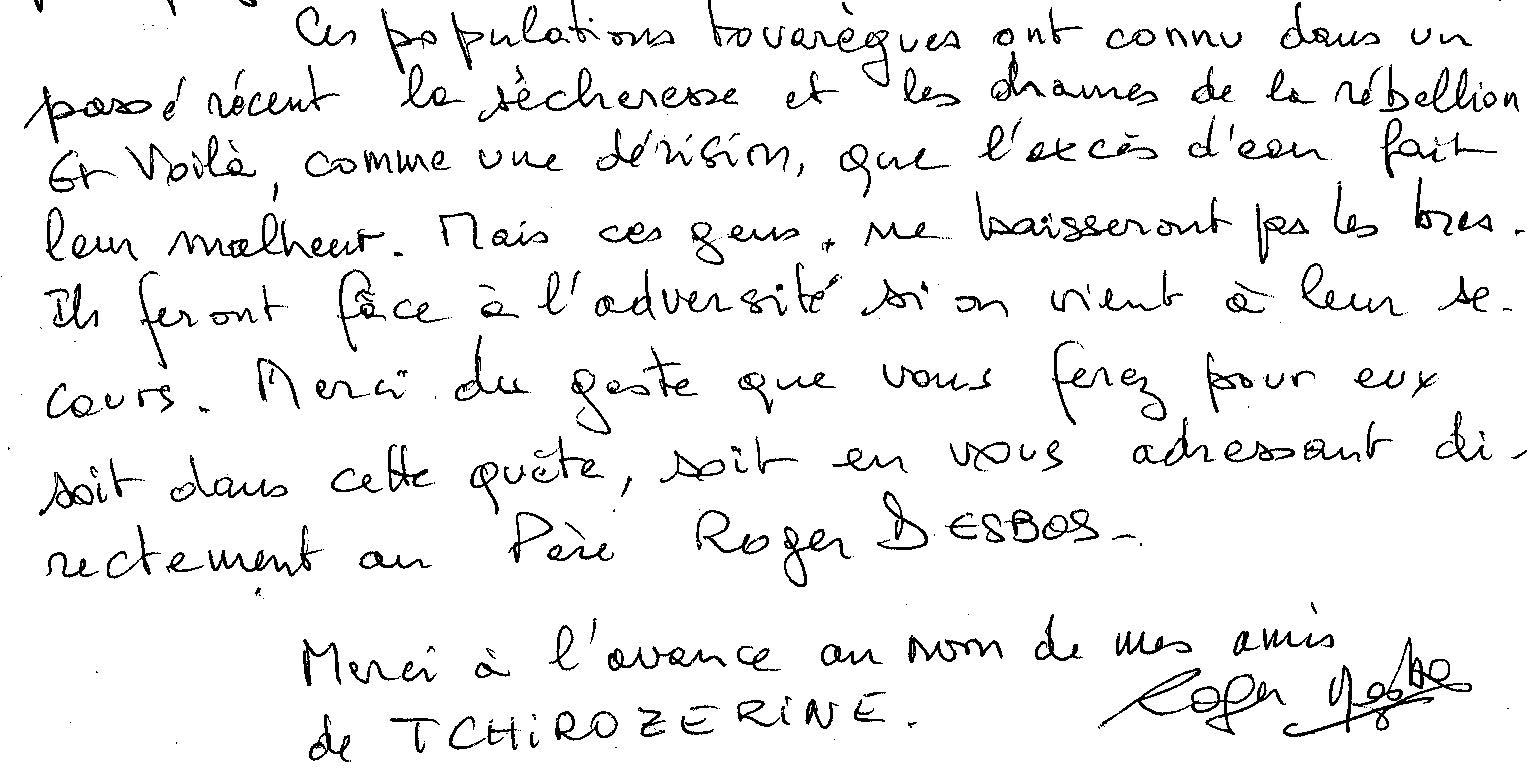 Ces populations touarègues ont connu dans un
passé récent la sècheresse et les drames de la rébellion
Et voilà, comme une dérision, que l'excès d'eau fait
leur malheur. Mais ces gens, ne baisseront pas les bras.
Ils feront fâce à l'adversité si on vient à leur se-
cours. Merci du geste que vous ferez pour eux
soit dans cette quête, soit en vous adressant di-
rectement au Père Roger DESBOS-
Merci à l'avance au nom de mes amis
de TCHIROZERINE.
Roger Desbos